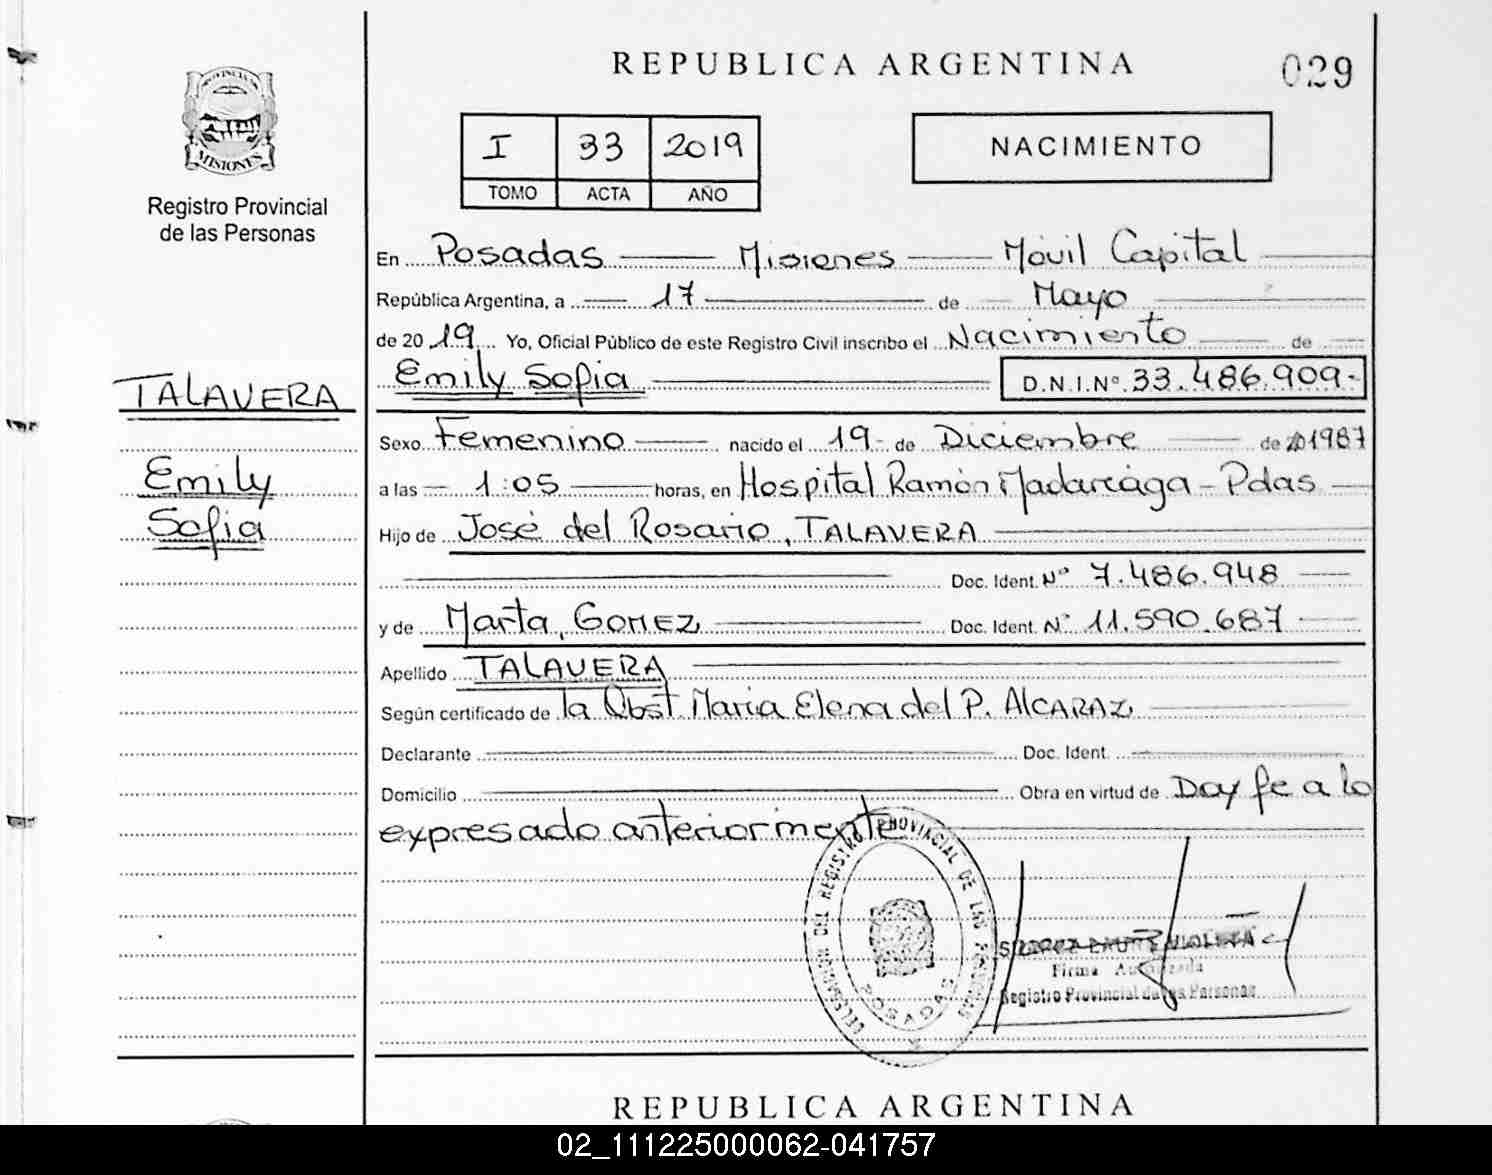 REPUBLICA ARGENTINA
029
PROVINCIA DE
MISIONES
Registro Provincial
de las Personas
I 33 2019
TOMO ACTA AÑO
NACIMIENTO
En Posadas Misiones Móvil Capital
República Argentina, a 17 de Mayo
de 2019 Yo, Oficial Público de este Registro Civil inscribo el Nacimiento de
Emily Sofia D.N.I.Nº 33.486.909-
TALAVERA
Emily
Sofia
Sexo Femenino nacido el 19 de Diciembre de 1987
a las 1:05 horas, en Hospital Ramón Madariaga - Pdas
Hijo de José del Rosario, TALAVERA
Doc. Ident. Nº 7.486.948
y de Marta, GOMEZ Doc. Ident. Nº 11.590.687
Apellido TALAVERA
Según certificado de la Obst. Maria Elena del P. ALCARAZ
Declarante Doc. Ident.
Domicilio Obra en virtud de Doy fe a lo
expresado anteriormente
DELEGACION DEL REGISTRO PROVINCIAL DE LAS PERSONAS
POSADAS
Firma Autorizada
Registro Provincial de las Personas
REPUBLICA ARGENTINA
02_111225000062-041757